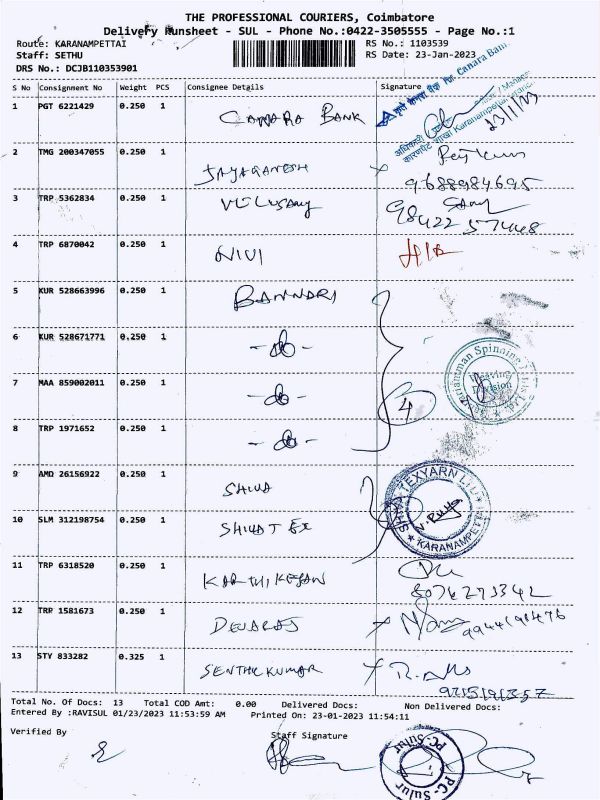 THE PROFESSIONAL COURIERS, Coimbatore
Delivery Runsheet - SUL - Phone No.:0422-3505555 - Page No.:1
Route: KARANAMPETTAI RS No.: 1103539
Staff: SETHU RS Date: 23-Jan-2023
DRS No.: DCJB110353901
S No Consignment No Weight PCS Consignee Details Signature
1 PGT 6221429 0.250 1 CANARA BANK
कृते केनरा बैंक For Canara Bank
23/1/23
2 TMG 200347055 0.250 1 JAYAGANESH
9688984695
3 TRP 5362834 0.250 1 VELUSAMY
98422 57448
4 TRP 6870042 0.250 1 NIVI
5 KUR 528663996 0.250 1 BANNARI
6 KUR 528671771 0.250 1 - do -
7 MAA 859002011 0.250 1 - do - 4
8 TRP 1971652 0.250 1 - do -
9 AMD 26156922 0.250 1 SHIVA
10 SLM 312198754 0.250 1 SHIVA TEX
SHIVA TEXYARN LTD KARANAMPETTAI
11 TRP 6318520 0.250 1 KARTHIKEYAN
12 TRP 1581673 0.250 1 DEVARAJ
13 STY 833282 0.325 1 SENTHIL KUMAR
Total No. Of Docs: 13 Total COD Amt: 0.00 Delivered Docs: Non Delivered Docs:
Entered By :RAVISUL 01/23/2023 11:53:59 AM Printed On: 23-01-2023 11:54:11
Verified By Staff Signature
PC-Sulur
PC-Sulur